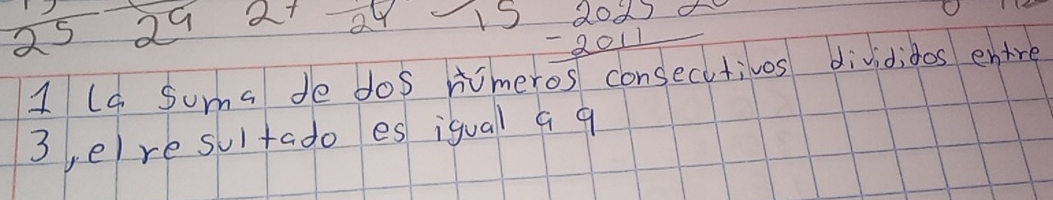 25 29 27 24 15 2025
- 2011
1 La suma de dos números consecutivos divididos entre
3, el resultado es igual a 9